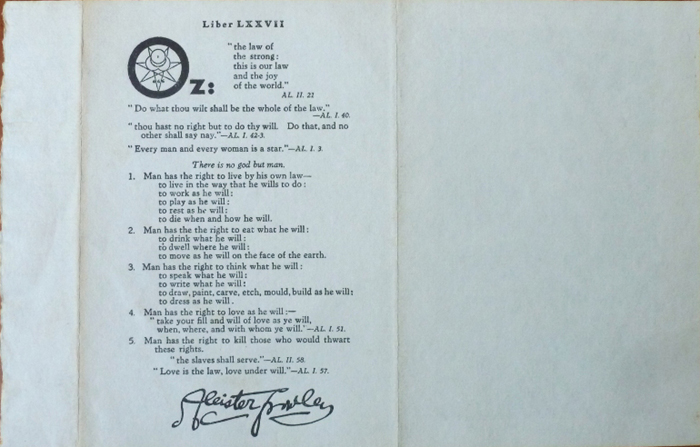 Liber LXXVII
Oz:
"the law of
the strong:
this is our law
and the joy
of the world."
AL. II. 21
"Do what thou wilt shall be the whole of the law."
—AL. I. 40.
"thou hast no right but to do thy will. Do that, and no
other shall say nay."—AL. I. 42-3.
"Every man and every woman is a star."—AL. I. 3.
There is no god but man.
1. Man has the right to live by his own law—
to live in the way that he wills to do:
to work as he will:
to play as he will:
to rest as he will:
to die when and how he will.
2. Man has the the right to eat what he will:
to drink what he will:
to dwell where he will:
to move as he will on the face of the earth.
3. Man has the right to think what he will:
to speak what he will:
to write what he will:
to draw, paint, carve, etch, mould, build as he will:
to dress as he will.
4. Man has the right to love as he will:—
"take your fill and will of love as ye will,
when, where, and with whom ye will.'—AL. I. 51.
5. Man has the right to kill those who would thwart
these rights.
"the slaves shall serve."—AL. II. 58.
"Love is the law, love under will."—AL. I. 57.
Aleister Crowley